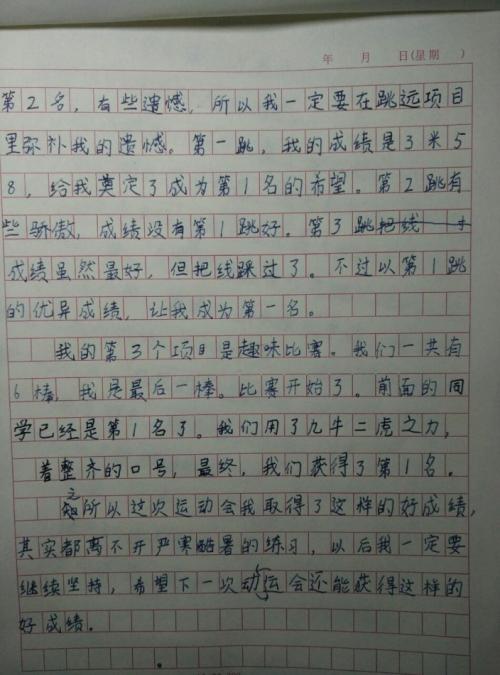 年 月 日(星期 )
第2名，有些遗憾，所以我一定要在跳远项目
里弥补我的遗憾。第一跳，我的成绩是3米5
8，给我奠定了成为第1名的希望。第2跳有
些骄傲，成绩没有第1跳好。第3跳把线
成绩虽然最好，但把线踩过了。不过以第1跳
的优异成绩，让我成为第一名。
我的第3个项目是趣味比赛。我们一共有
6棒，我是最后一棒。比赛开始了。前面的同
学已经是第1名了。我们用了九牛二虎之力，
着整齐的口号，最终，我们获得了第1名。
之所以这次运动会我取得了这样的好成绩，
其实都离不开严寒酷暑的练习，以后我一定要
继续坚持，希望下一次动运会还能获得这样的
好成绩.